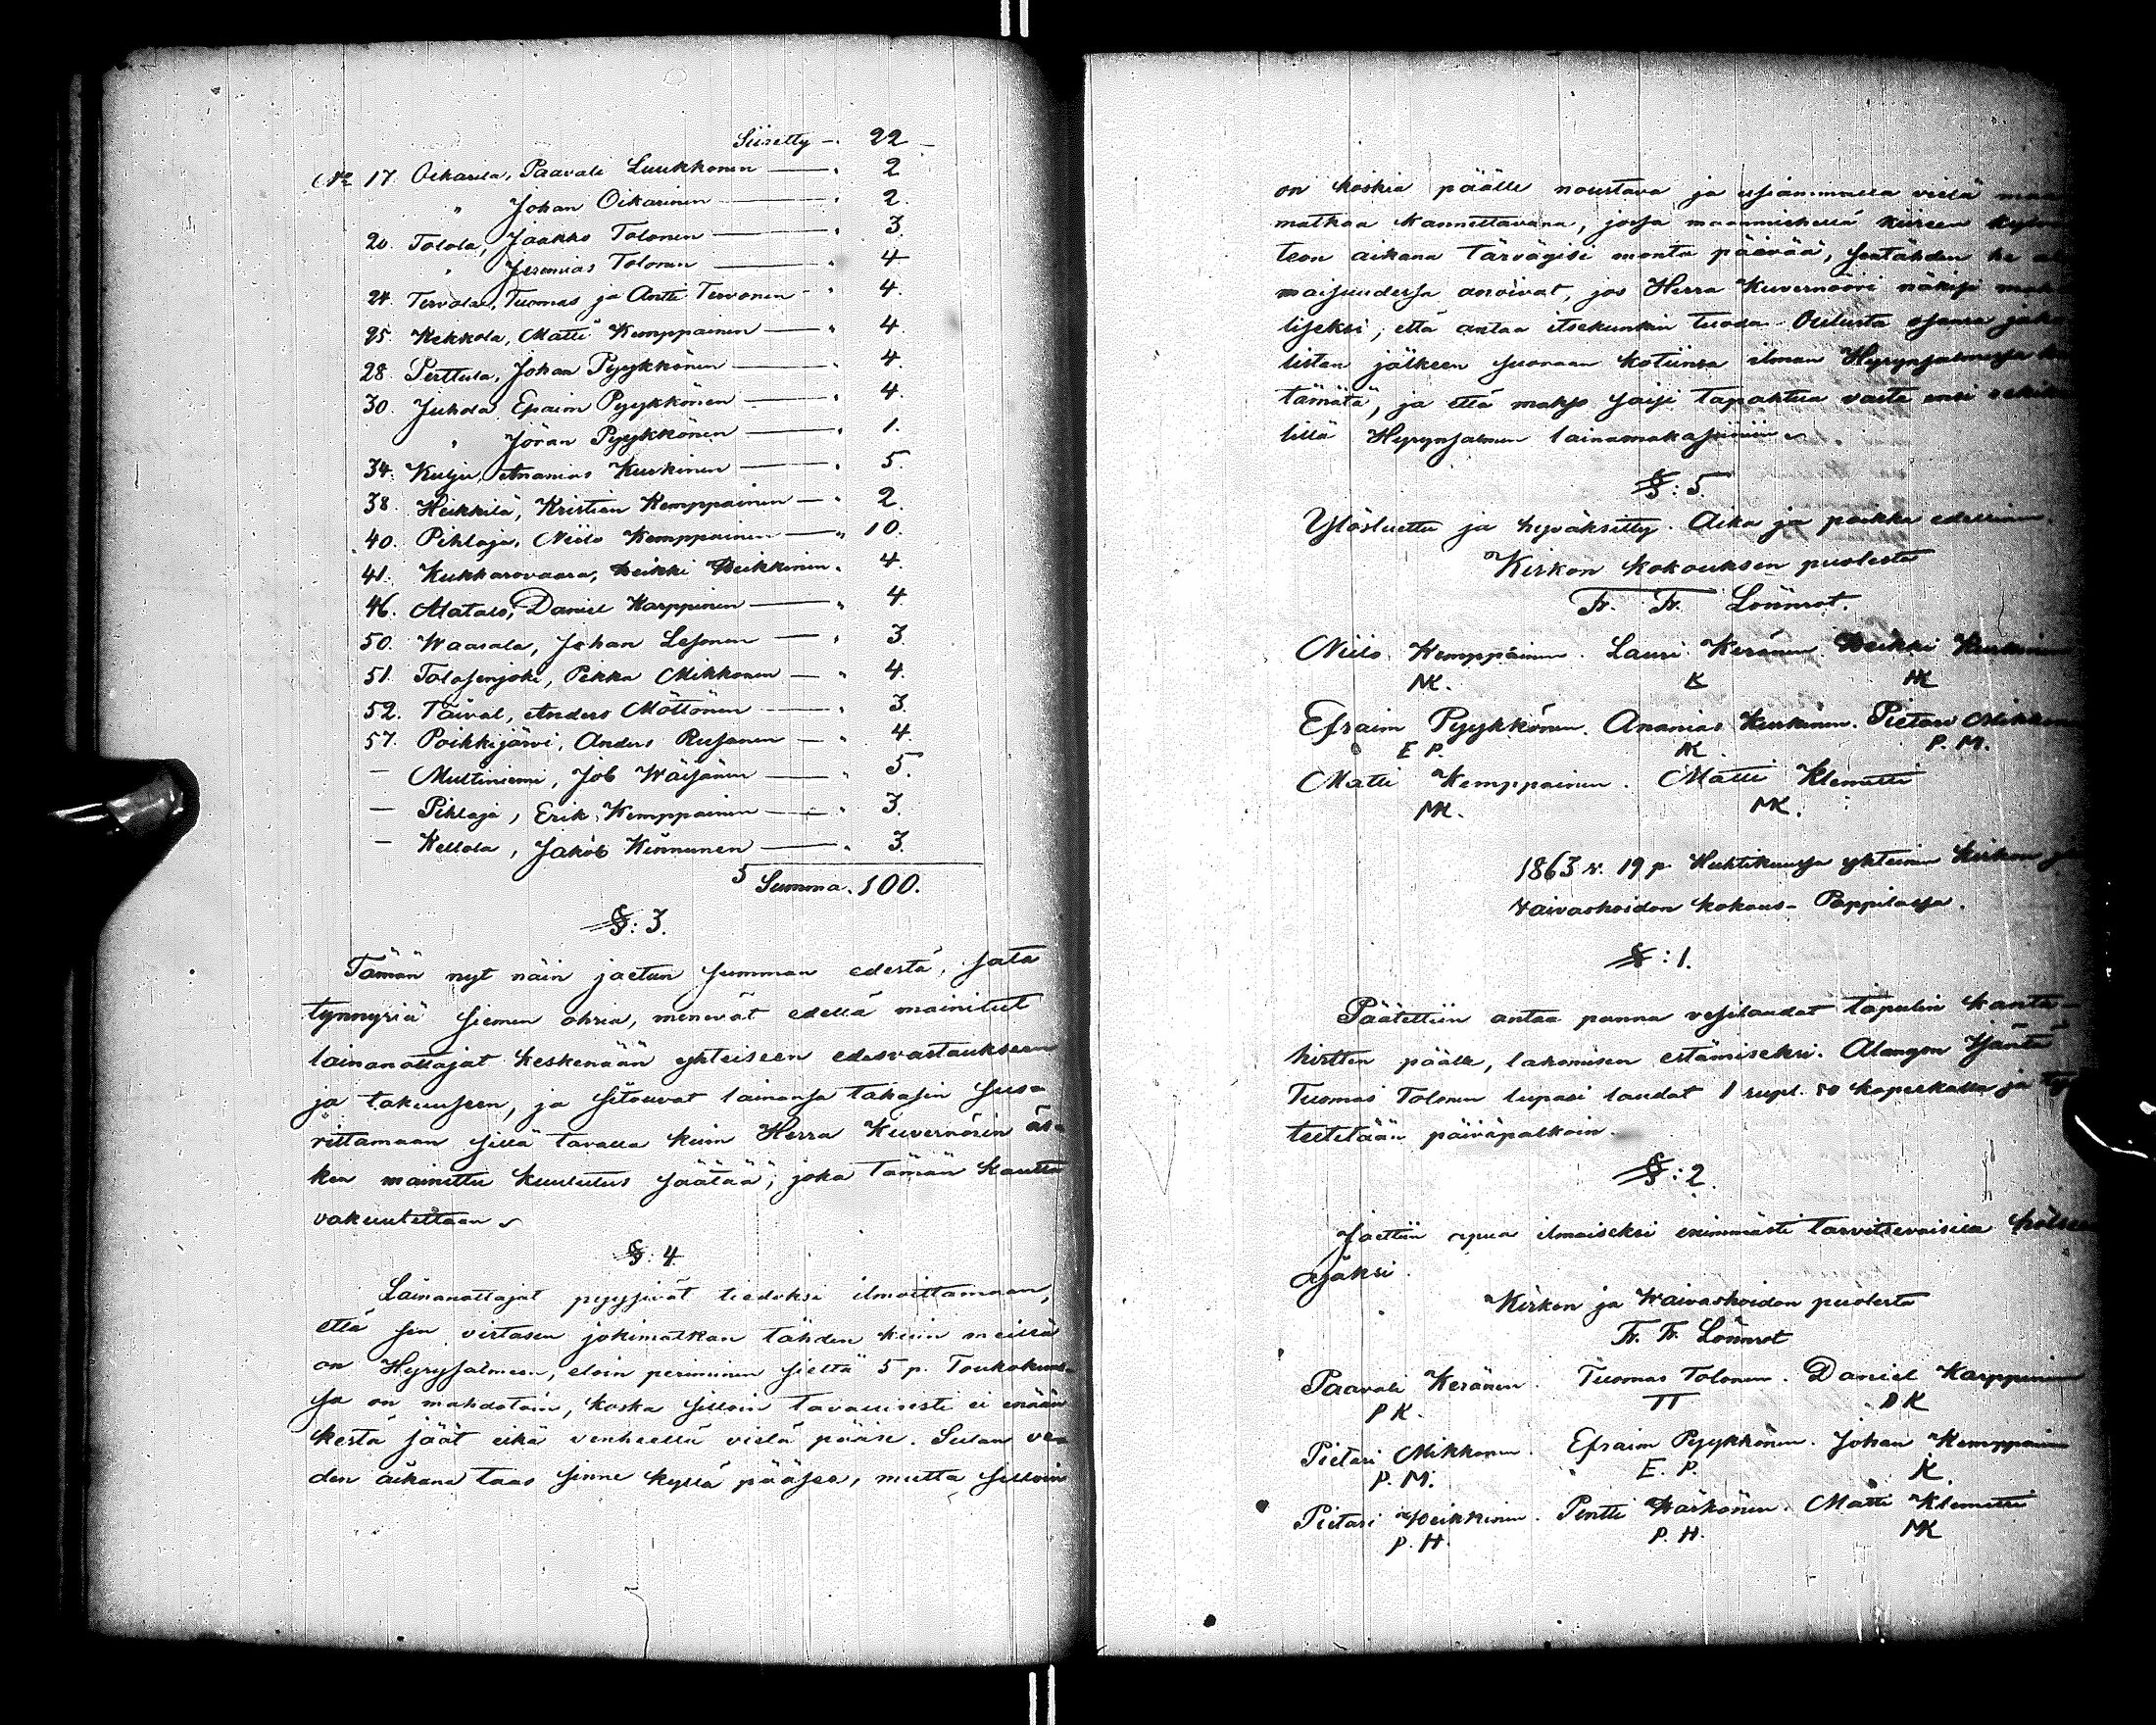 Siiretty - . 22 -
№ 17. Oikarila, Paavali Luukkonen — " 2
" Johan Oikarinen — " 2.
20. Tolola, Jaakko Tolonen — " 3.
" Jeremias Tolonen — " 4
24. Tervola, Tuomas ja Antti Tervonen - " 4.
25. Kekkola, Matti Kemppainen — " 4.
28. Perttula, Johan Pyykkönen — " 4.
30. Juhola Efraim Pyykkönen — " 4.
" Jöran Pyykkönen — " 1.
34. Kulju, Ananias Kurkinen — " 5.
38. Heikkilä, Kristian Kemppainen — " 2.
40. Pihlaja, Niilo Kemppainen — " 10.
41. Kukkarovaara, Heikki Heikkinen " 4.
46. Matalo, Daniel Karppinen — " 4.
50. Waarala, Johan Lesonen — " 3.
51. Tolosenjoki, Pekka Mikkonen — " 4.
52. Taival, Anders Möttönen — " 3.
57. Poikkijärvi, Anders Rusanen — " 4.
— Multiniemi, Job Wäisänen — " 5.
— Pihlaja, Erik Kemppainen — " 3.
— Kellola, Jakob Kinnunen — " 3.
Summa. 100.
§: 3.
Tämän nyt näin jaetun summan edestä, sata
tynnyriä siemen ohria, menevät edellä mainitut
lainanottajat keskenään yhteiseen edesvastaukseen
ja takuuseen, ja sitouvat lainansa takasin suo-
rittamaan sillä tavalla kuin Herra Kuvernörin äs-
ken mainittu kuulutus säätää, joka tämän kautta
vakuutettaan
§: 4.
Lainanottajat pyysivät tiedoksi ilmoittamaan,
että sen virtasen jokimatkan tähden kuin meillä
on Hyrysalmeen, eloin periminen sieltä 5 p. Toukokuus-
sa on mahdotoin, koska silloin tavallisesti ei enään
kestä jäät eikä venheellä vielä pääse. Sulan ve-
den aikana taas sinne kyllä pääsee, mutta silloin
on koskia päälle noustava ja usiammalla vielä
matkaa kannettavana, jossa maanmieheltä kiireen
teon aikana tärvägisi monta päivää, sentähden he
maisuudessa anoivat, jos Herra Kuvernööri näkisi
liseksi, että antaa itsekunkin tuoda Oulusta osansa
listan jälkeen suoraan kotiinsa ilman Hyrynsalmessa
tämätä, ja että makso saisi tapahtua vasta ensi
lillä Hyrynsalmen lainamakasiiniin
§: 5.
Ylösluettu ja hyväksitty. Aika ja paikka edellinen.
Kirkon kokouksen puolesta
Fr. Fr. Lönnrot.
Niilo Kemppainen. Lauri Keränen Heikki
NK. K HK
Efraim Pyykkönen. Ananias Kurkinen. Pietari
E P. AK P. M.
Matti Kemppainen. Matti Klemetti
MK. MK.
1863 v. 19 p. Huhtikuussa yhteinen kirkon
vaivashoidon kokous- Pappilassa.
§: 1.
Päätettiin antaa panna vesilaudat tapulin kanta-
hirtten päälle, lahomisen estämiseksi. Alangon Isäntä
Tuomas Tolonen lupasi laudat 1 rupl. 50 kopeekalla ja
teetetään päiväpalkoin.
§: 2.
Jaettiin apua ilmaiseksi enimmästi tarvitsevaisille
ajaksi.
Kirkon ja Waivashoidon puolesta
Fr. Fr. Lönnrot
Paavali Keränen. Tuomas Tolonen. Daniel Karppinen
P K. TT DK
Pietari Mikkonen. Efraim Pyykkönen. Johan Kemppainen
P. M. E. P. K.
Pietari Heikkinen. Pentti Härkönen. Matti Klemetti
P. H. P. H. MK